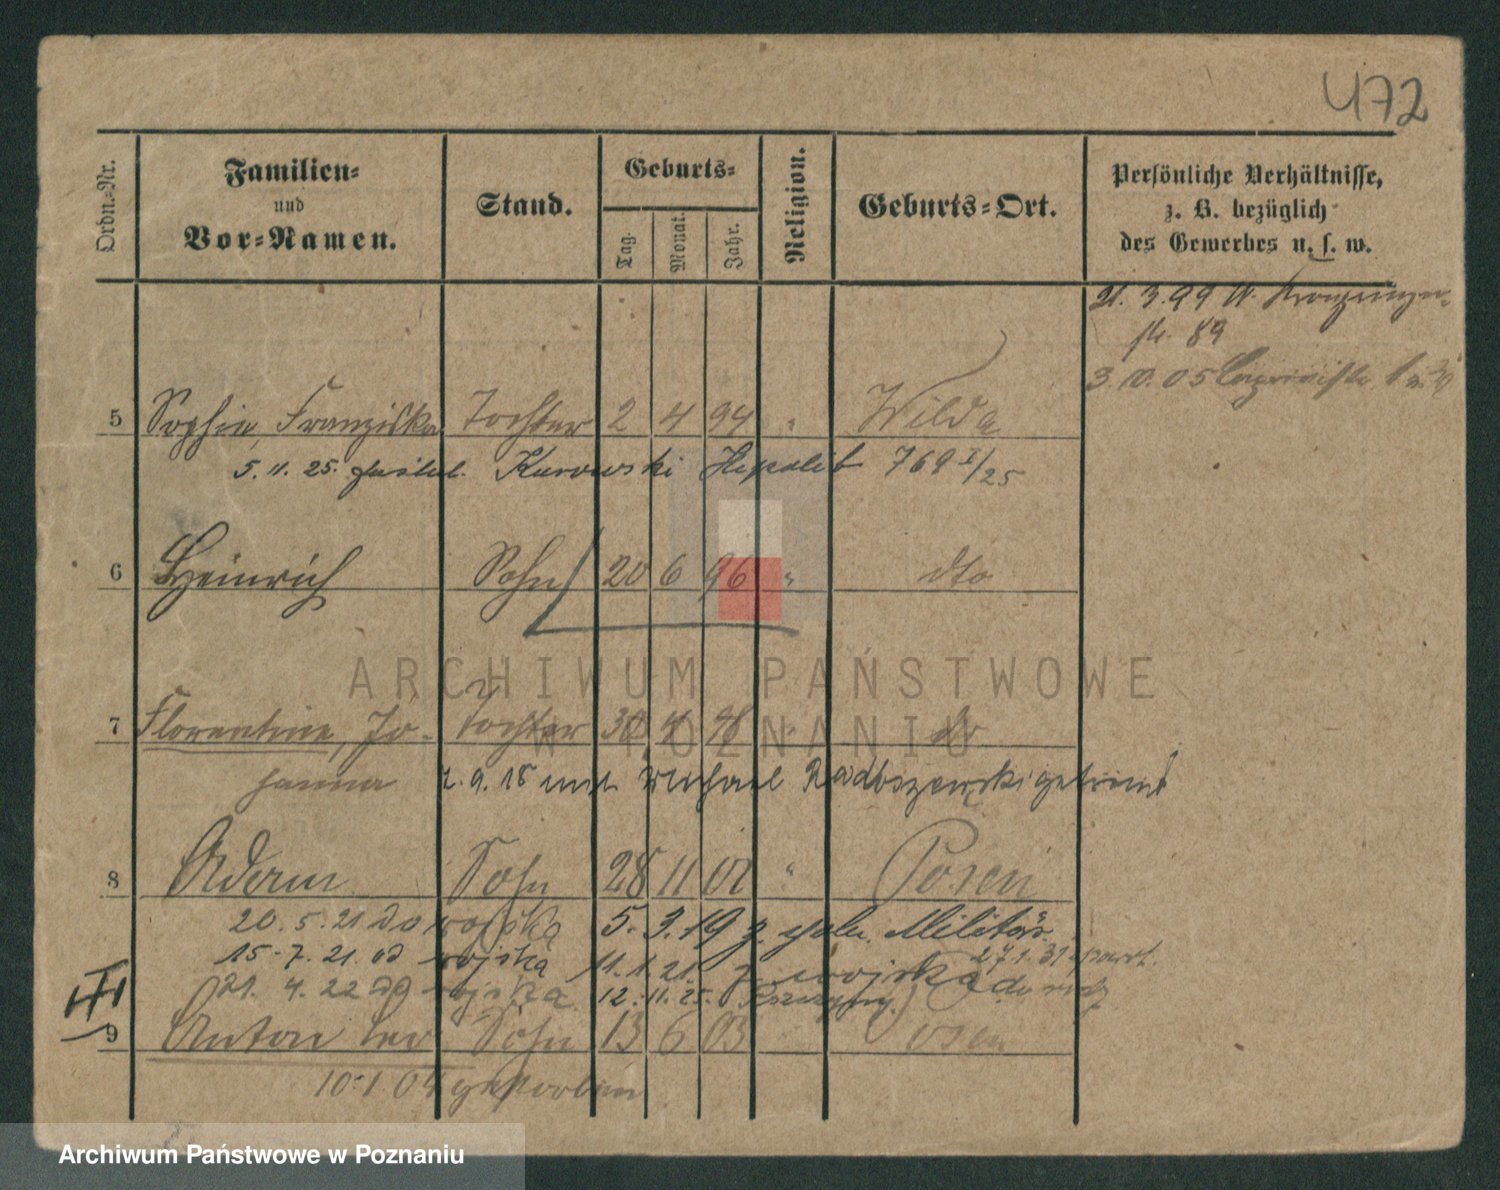 472
Ordn.-Nr.
Familien-
und
Vor-Namen.
Stand.
Geburts-
Tag.
Monat.
Jahr.
Religion.
Geburts-Ort.
Persönliche Verhältnisse,
z. B. bezüglich
des Gewerbes u. s. w.
21. 3. 99
str. 89
3. 10. 05
5 Sophie, Franziska Tochter 2 4 94 " Wilda
5. 11. 25. Kurowski Hipolit 769 I/25
6 Heinrich Sohn 20 6 96 " dto
ARCHIWUM PAŃSTWOWE
W POZNANIU
7 Florentine, Jo- Tochter 30 4 98 " do
hanna 2. 9. 18 mit Michael Radoszewski getraut
8 Adam Sohn 28 11 01 " Posen
20. 5. 21 do wojska 5. 3. 19 z. poln. Militär
15. 7. 21 od wojska 11. 1. 21. z wojska 27 1. 31
21. 4. 22 do wojska 12. 11. 25.
III
9 Anton Leo Sohn 13 6 03 Posen
10. 1 04 gestorben
Archiwum Państwowe w Poznaniu